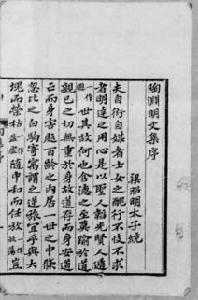 陶淵明文集序
梁昭明太子統
夫自衒自媒者士女之醜行不忮不求
者明達之用心是以聖人韜光賢人遁
世其故何也含德之至莫踰於道
親己之切無重於身故道存而身安道
亡而身害處百齡之內居一世之中倏
忽比之白駒寄寓謂之逆旅宜乎與大
塊而榮枯一作盈虛隨中和而任放豈